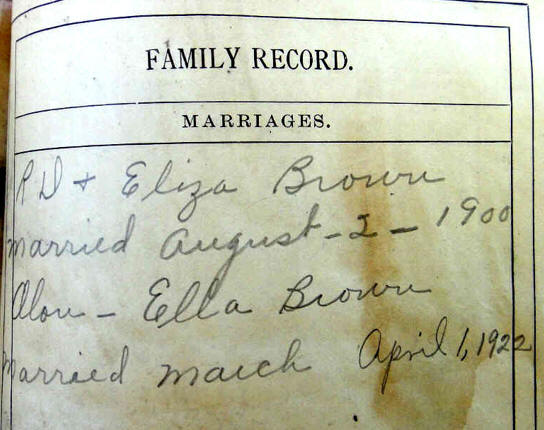 FAMILY RECORD.
MARRIAGES.
R D + Eliza Brown
married August - 2 - 1900
Alon - Ella Brown
married march April 1, 1922